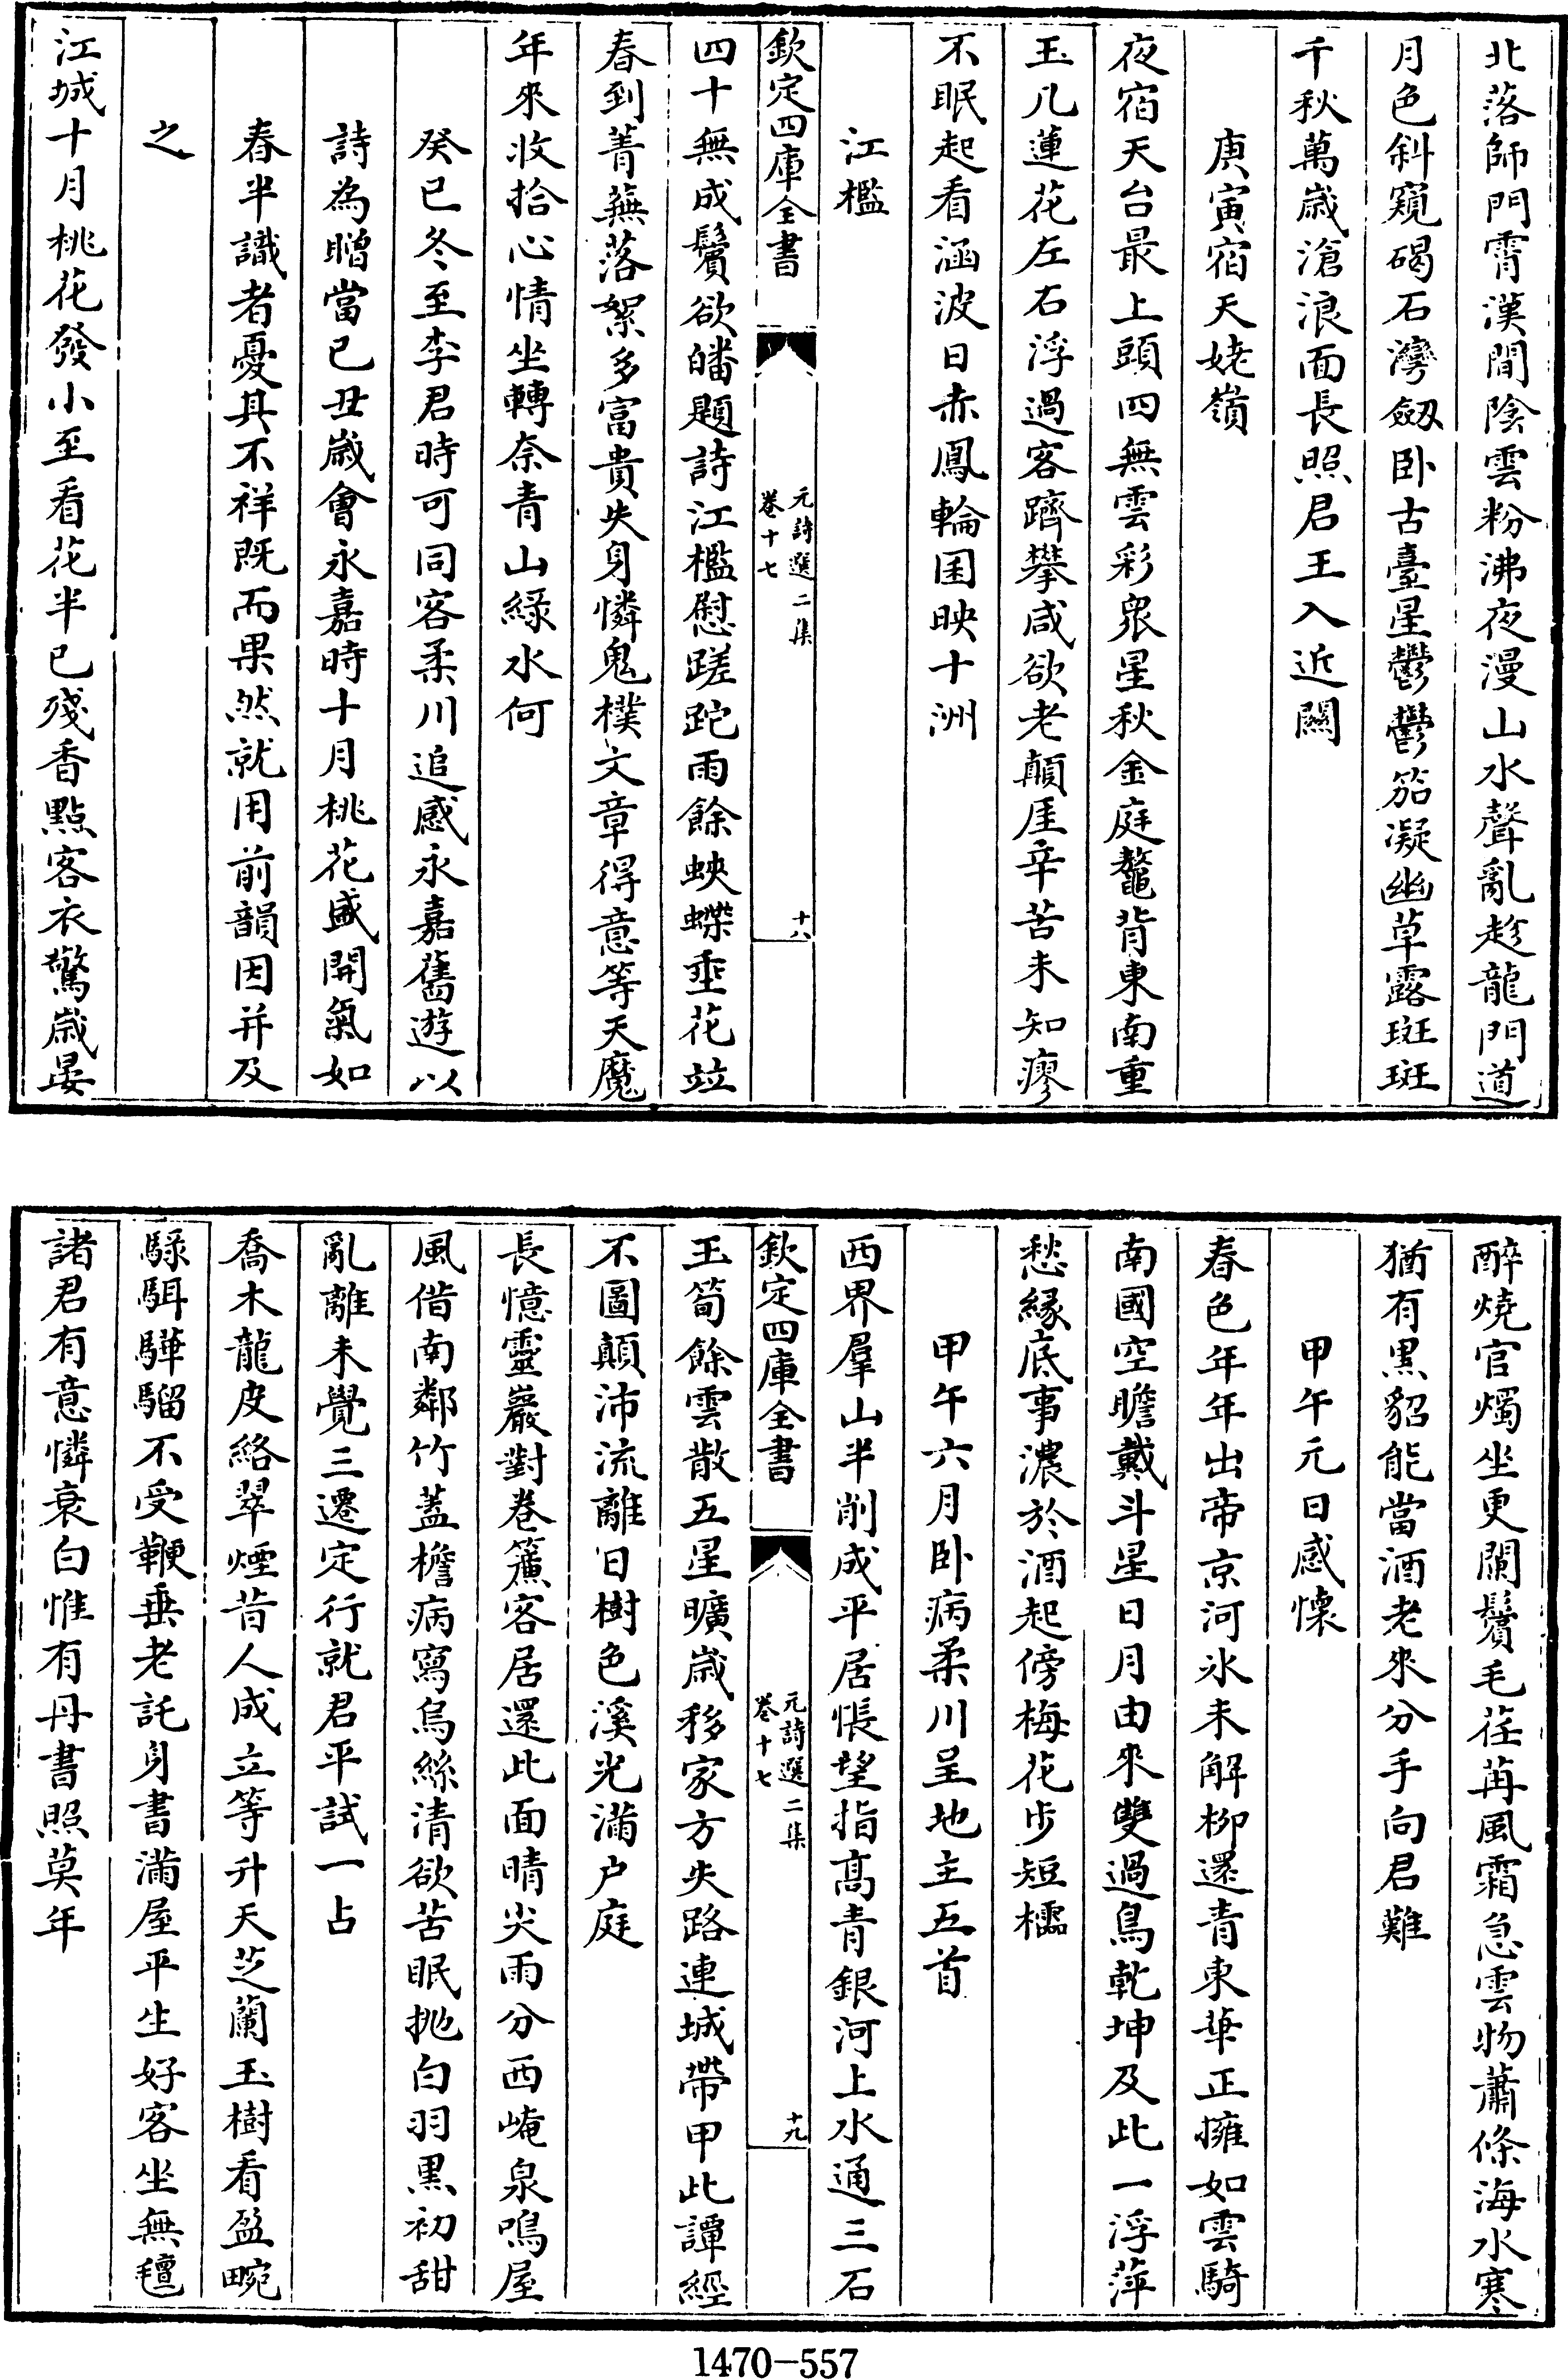 北落師門霄漢間陰雲粉沸夜漫山水聲亂趁龍門道
月色斜窺碣石灣劒卧古臺星鬱鬱笳凝幽草露斑斑
千秋萬歲滄浪面長照君王入近關
庚寅宿天姥嶺
夜宿天台最上頭四無雲彩眾星秋金庭鼇背東南重
玉几蓮花左右浮過客躋攀咸欲老顛厓辛苦未知瘳
不眠起看涵波日赤鳳輪囷映十洲
江檻
欽定四庫全書
元詩選二集
卷十七
十八
四十無成鬢欲皤題詩江檻慰蹉跎雨餘蛺蝶垂花竝
春到菁蕪落絮多富貴失身憐鬼樸文章得意等天魔
年來收拾心情坐轉奈青山綠水何
癸巳冬至李君時可同客柔川追感永嘉舊遊以
詩為贈當己丑歲會永嘉時十月桃花盛開氣如
春半識者憂其不祥既而果然就用前韻因并及
之
江城十月桃花發小至看花半已殘香點客衣驚歲晏
醉燒官燭坐更闌鬢毛荏苒風霜急雲物蕭條海水寒
猶有黑貂能當酒老來分手向君難
甲午元日感懷
春色年年出帝京河冰未解柳還青東華正擁如雲騎
南國空瞻戴斗星日月由來雙過鳥乾坤及此一浮萍
愁緣底事濃於酒起傍梅花步短櫺
甲午六月卧病柔川呈地主五首
西界羣山半削成平居悵望指高青銀河上水通三石
欽定四庫全書
元詩選二集
卷十七
十九
玉筍餘雲散五星曠歲移家方失路連城帶甲此譚經
不圖顛沛流離日樹色溪光滿户庭
長憶靈巖對卷簾客居還此面晴尖雨分西崦泉鳴屋
風偕南鄰竹蓋檐病寫烏絲清欲苦眠抛白羽黑初甜
亂離未覺三遷定行就君平試一占
喬木龍皮絡翠煙昔人成立等升天芝蘭玉樹看盈畹
騄駬驊騮不受鞭垂老託身書滿屋平生好客坐無氊
諸君有意憐衰白惟有丹書照莫年
1470-557